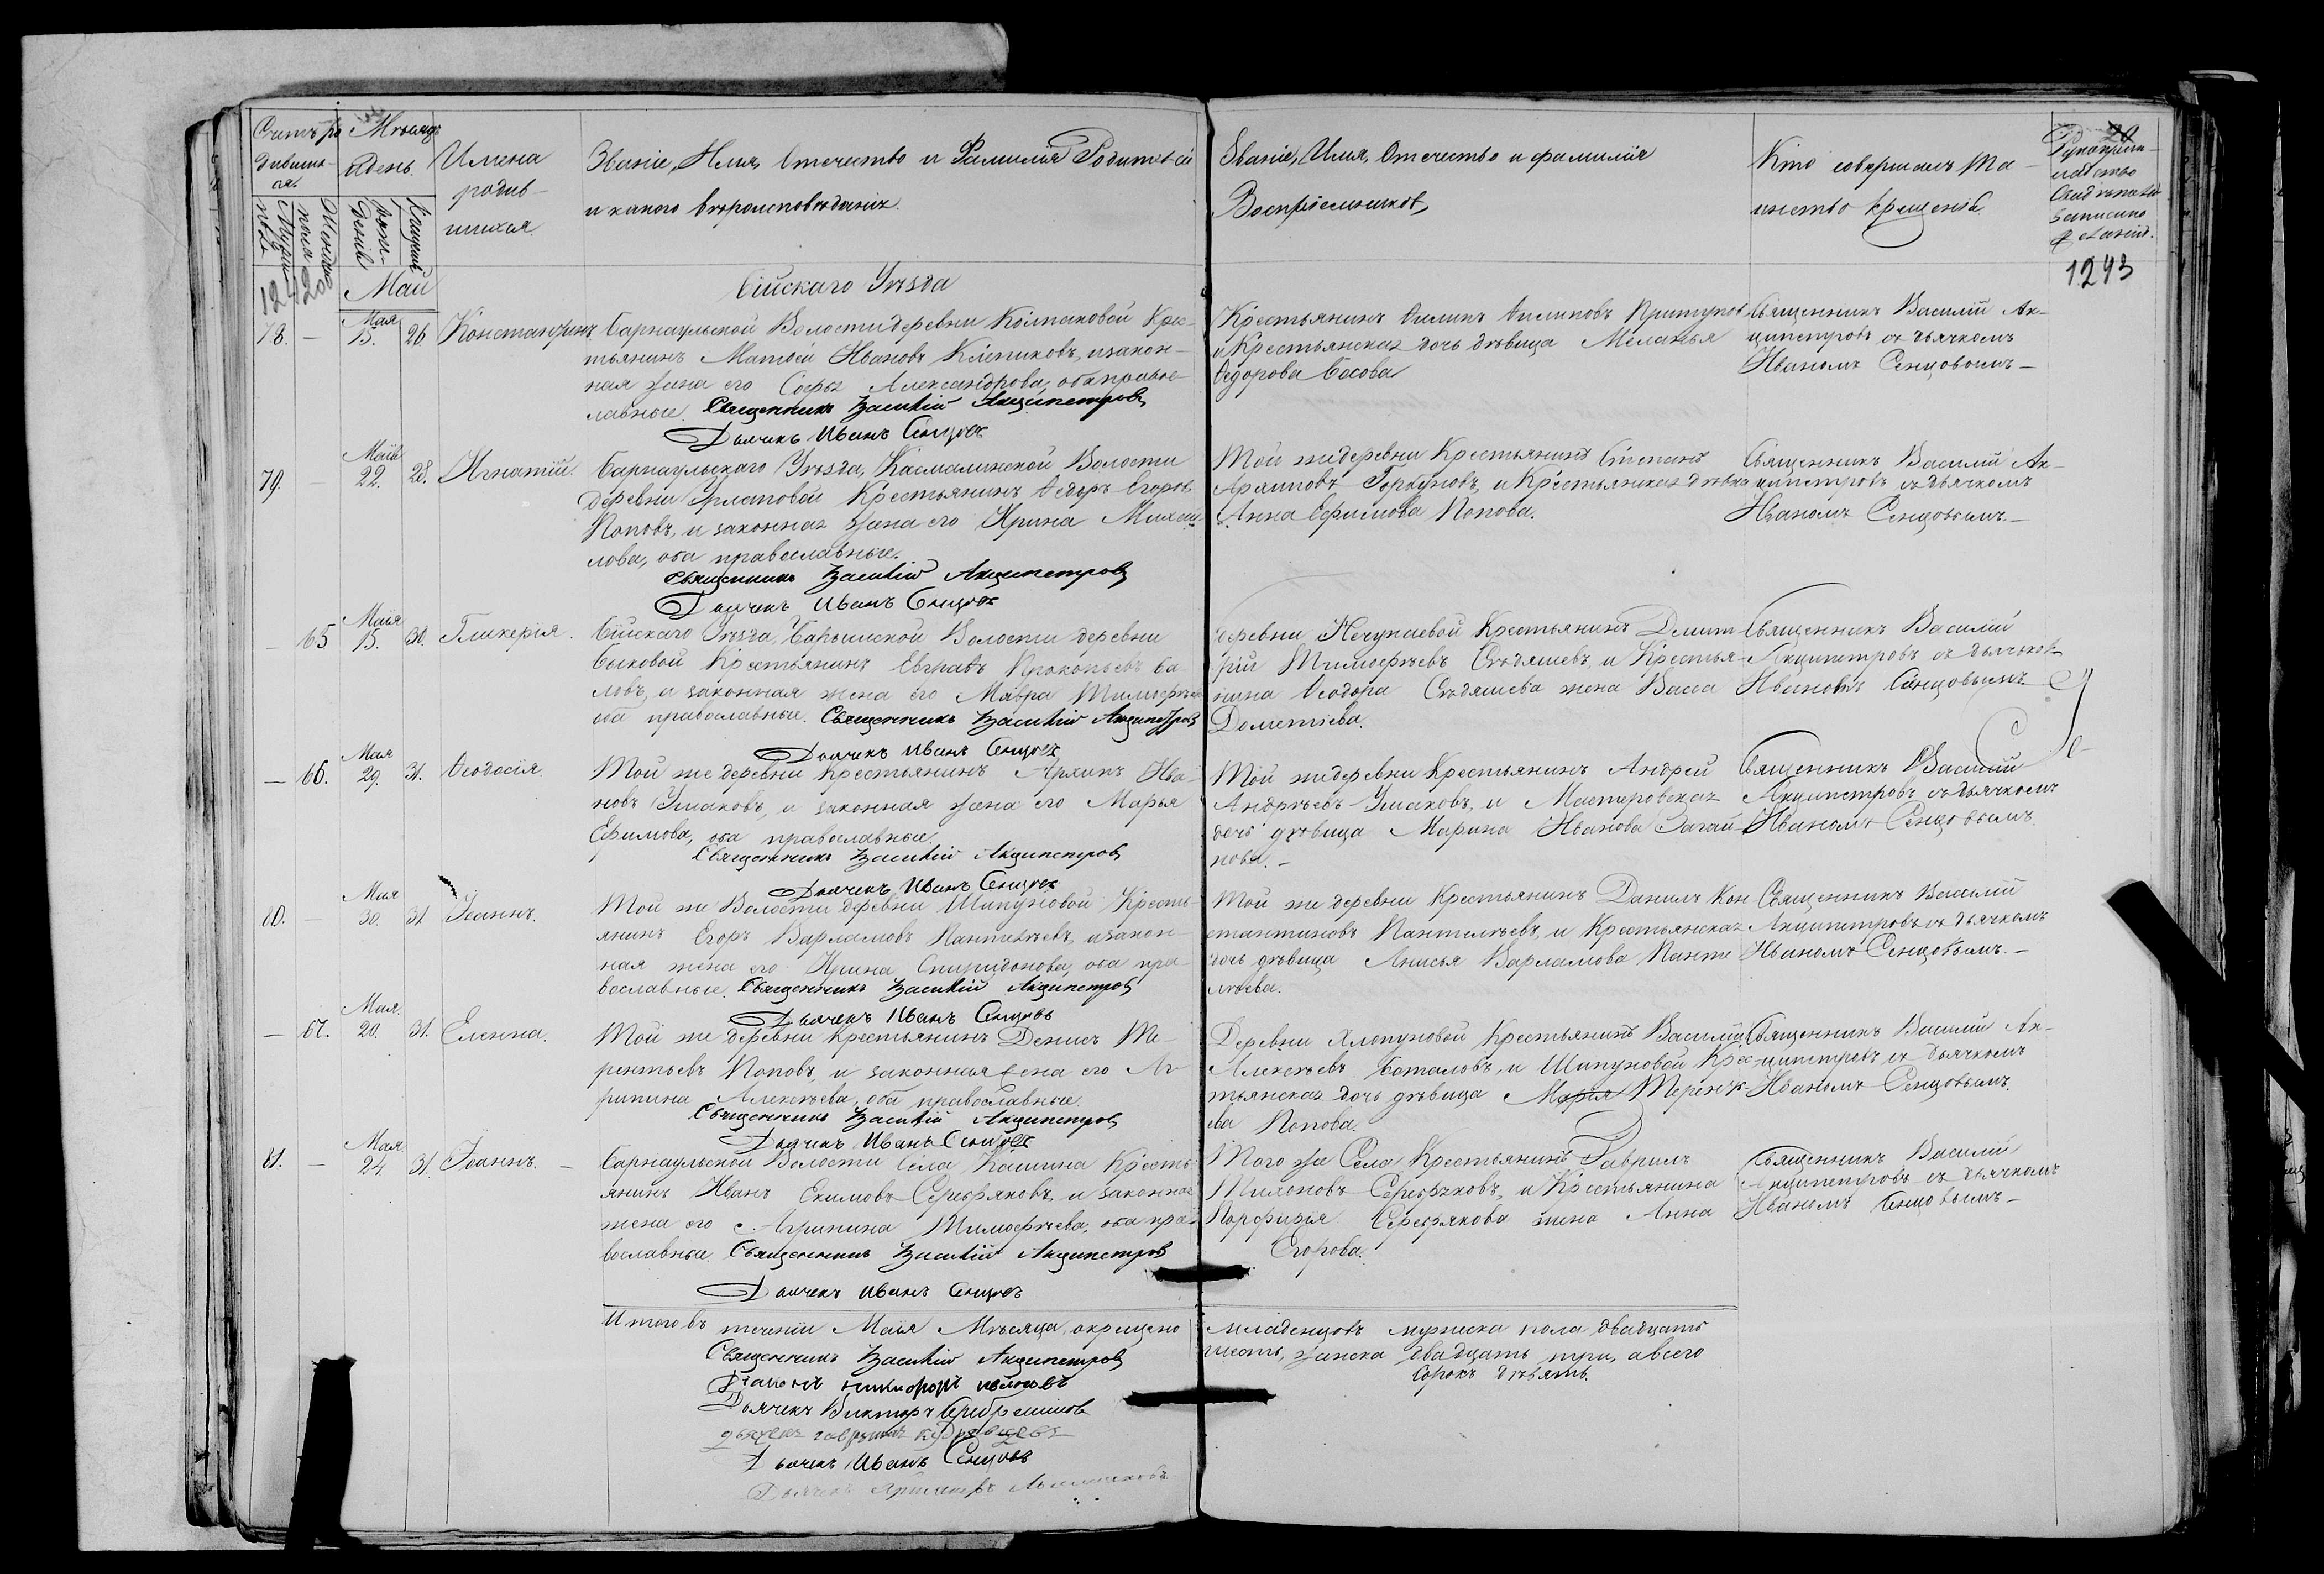 Счетъ ро
дивших-
ся.
Мѣсяцъ
и день
Имена
родив-
шихся.
Званіе, Имя, Отечество и Фамилія Родителей
и какого вѣроисповѣданія.
Званіе, Имя, Отечество и фамилія
Воспріемниковъ
Кто совершалъ Та-
инство крещенія.
Рукоприк-
ладство
свидѣтелей
записано
20
Мужска
пола
Женска
пола
Рож-
денія
Крещенія
1242
об
Май
Бійскаго Уѣзда
1243
78. — Мая 15. 26. Константинъ
Барнаульской Волости деревни Колпаковой Крес-
тьянинъ Матвѣй Ивановъ Клепиковъ, и закон-
ная жена его Софья Александрова, оба правос-
лавные. Священникъ Василій Акципетровъ
Дьячекъ Иванъ Сенцовъ
Крестьянинъ Филипъ Филиповъ Притуповъ
и Крестьянская дочь дѣвица Меланья
Федорова Басова
Священникъ Василій Ак-
ципетровъ съ дьячкомъ
Иваномъ Сенцовымъ —
79. — Маія 22. 28. Игнатій.
Барнаульскаго Уѣзда, Касмалинской Волости
деревни Урлаповой Крестьянинъ Федоръ Егоровъ
Поповъ, и законная жена его Ирина Михай-
лова, оба православные.
Священникъ Василій Акципетровъ
Дьячекъ Иванъ Сенцовъ
Той же деревни Крестьянинъ Степанъ
Архиповъ Горбуновъ, и Крестьянская дѣвка
Анна Ефимова Попова.
Священникъ Василій Ак-
ципетровъ съ дьячкомъ
Иваномъ Сенцовымъ. —
— 65 Маія 15. 30. Гликерія.
Бійскаго Уѣзда, Чарышской Волости деревни
Быковой Крестьянинъ Евграфъ Прокопьевъ Ба-
ловъ, и законная жена его Мавра Тимофѣева
оба православные. Священникъ Василій Акципетровъ
Дьячекъ Иванъ Сенцовъ
деревни Нечунаевой Крестьянинъ Димит-
рій Тимофѣевъ Сѣдяшевъ, и Крестья-
нина Феодора Сѣдяшева жена Васса
Дометіева.
Священникъ Василій
Акципетровъ съ дьячком
Иваномъ Сенцовымъ
— 66. Мая 29. 31. Феодосія.
Той же деревни Крестьянинъ Архипъ Ива-
новъ Ушаковъ, и законная жена его Марья
Ефимова, оба православные.
Священникъ Василій Акципетровъ
Дьячекъ Иванъ Сенцовъ
Той же деревни Крестьянинъ Андрей
Андреевъ Ушаковъ, и Мастеровская
дочь дѣвица Марина Иванова Загай-
нова. —
Священникъ Василій
Акципетровъ съ дьячкомъ
Иваномъ Сенцовымъ.
80. — Мая 30. 31 Іоаннъ.
Той же Волости деревни Шипуновой Кресть-
янинъ Егоръ Варламовъ Пантелѣевъ, и закон-
ная жена его Ирина Спиридонова, оба пра-
вославные. Священникъ Василій Акципетровъ
Дьячекъ Иванъ Сенцовъ
Той же деревни Крестьянинъ Данилъ Кон
стантиновъ Пантелѣевъ, и Крестьянская
дочь дѣвица Анисья Варламова Панте
лѣева.
Священникъ Василій
Акципетровъ съ дьячкомъ
Иваномъ Сенцовымъ. —
— 67. Мая. 20. 31. Еленна.
Той же деревни Крестьянинъ Денисъ Те-
рентьевъ Поповъ, и законная жена его Аг-
рипина Алексѣева, оба православные.
Священникъ Василій Акципетровъ
Дьячекъ Иванъ Сенцовъ
Деревни Хлопуновой Крестьянинъ Василій
Алексѣевъ Баталовъ, и Шипуновой Крес-
тьянская дочь дѣвица Марья Терентъ
ева Попова.
Священникъ Василій Ак-
ципетровъ съ дьячкомъ
Иваномъ Сенцовымъ.
81. — Мая 24 31. Іоаннъ. —
Барнаульской Волости Села Кашина Кресть-
янинъ Иванъ Екимовъ Серебряковъ, и законная
жена его Агрипина Тимофѣева, оба пра-
вославные. Священникъ Василій Акципетровъ
Дьячекъ Иванъ Сенцовъ
Того же Села Крестьянинъ Гаврилъ
Тихоновъ Серебряковъ, и Крестьянина
Порфирія Серебрякова жена Анна
Егорова.
Священникъ Василій
Акципетровъ съ дьячкомъ
Иваномъ Сенцовымъ —
Итого въ теченіи Маія Мѣсяца окрещено младенцовъ мужеска пола двадцать
шесть, женска двадцать три, а всего
сорокъ девять.
Священникъ Василій Акципетровъ
Діаконъ Никифоръ
Дьячекъ Викторъ
Дьячекъ Гаврилъ
Дьячекъ Иванъ Сенцовъ
Дьячекъ